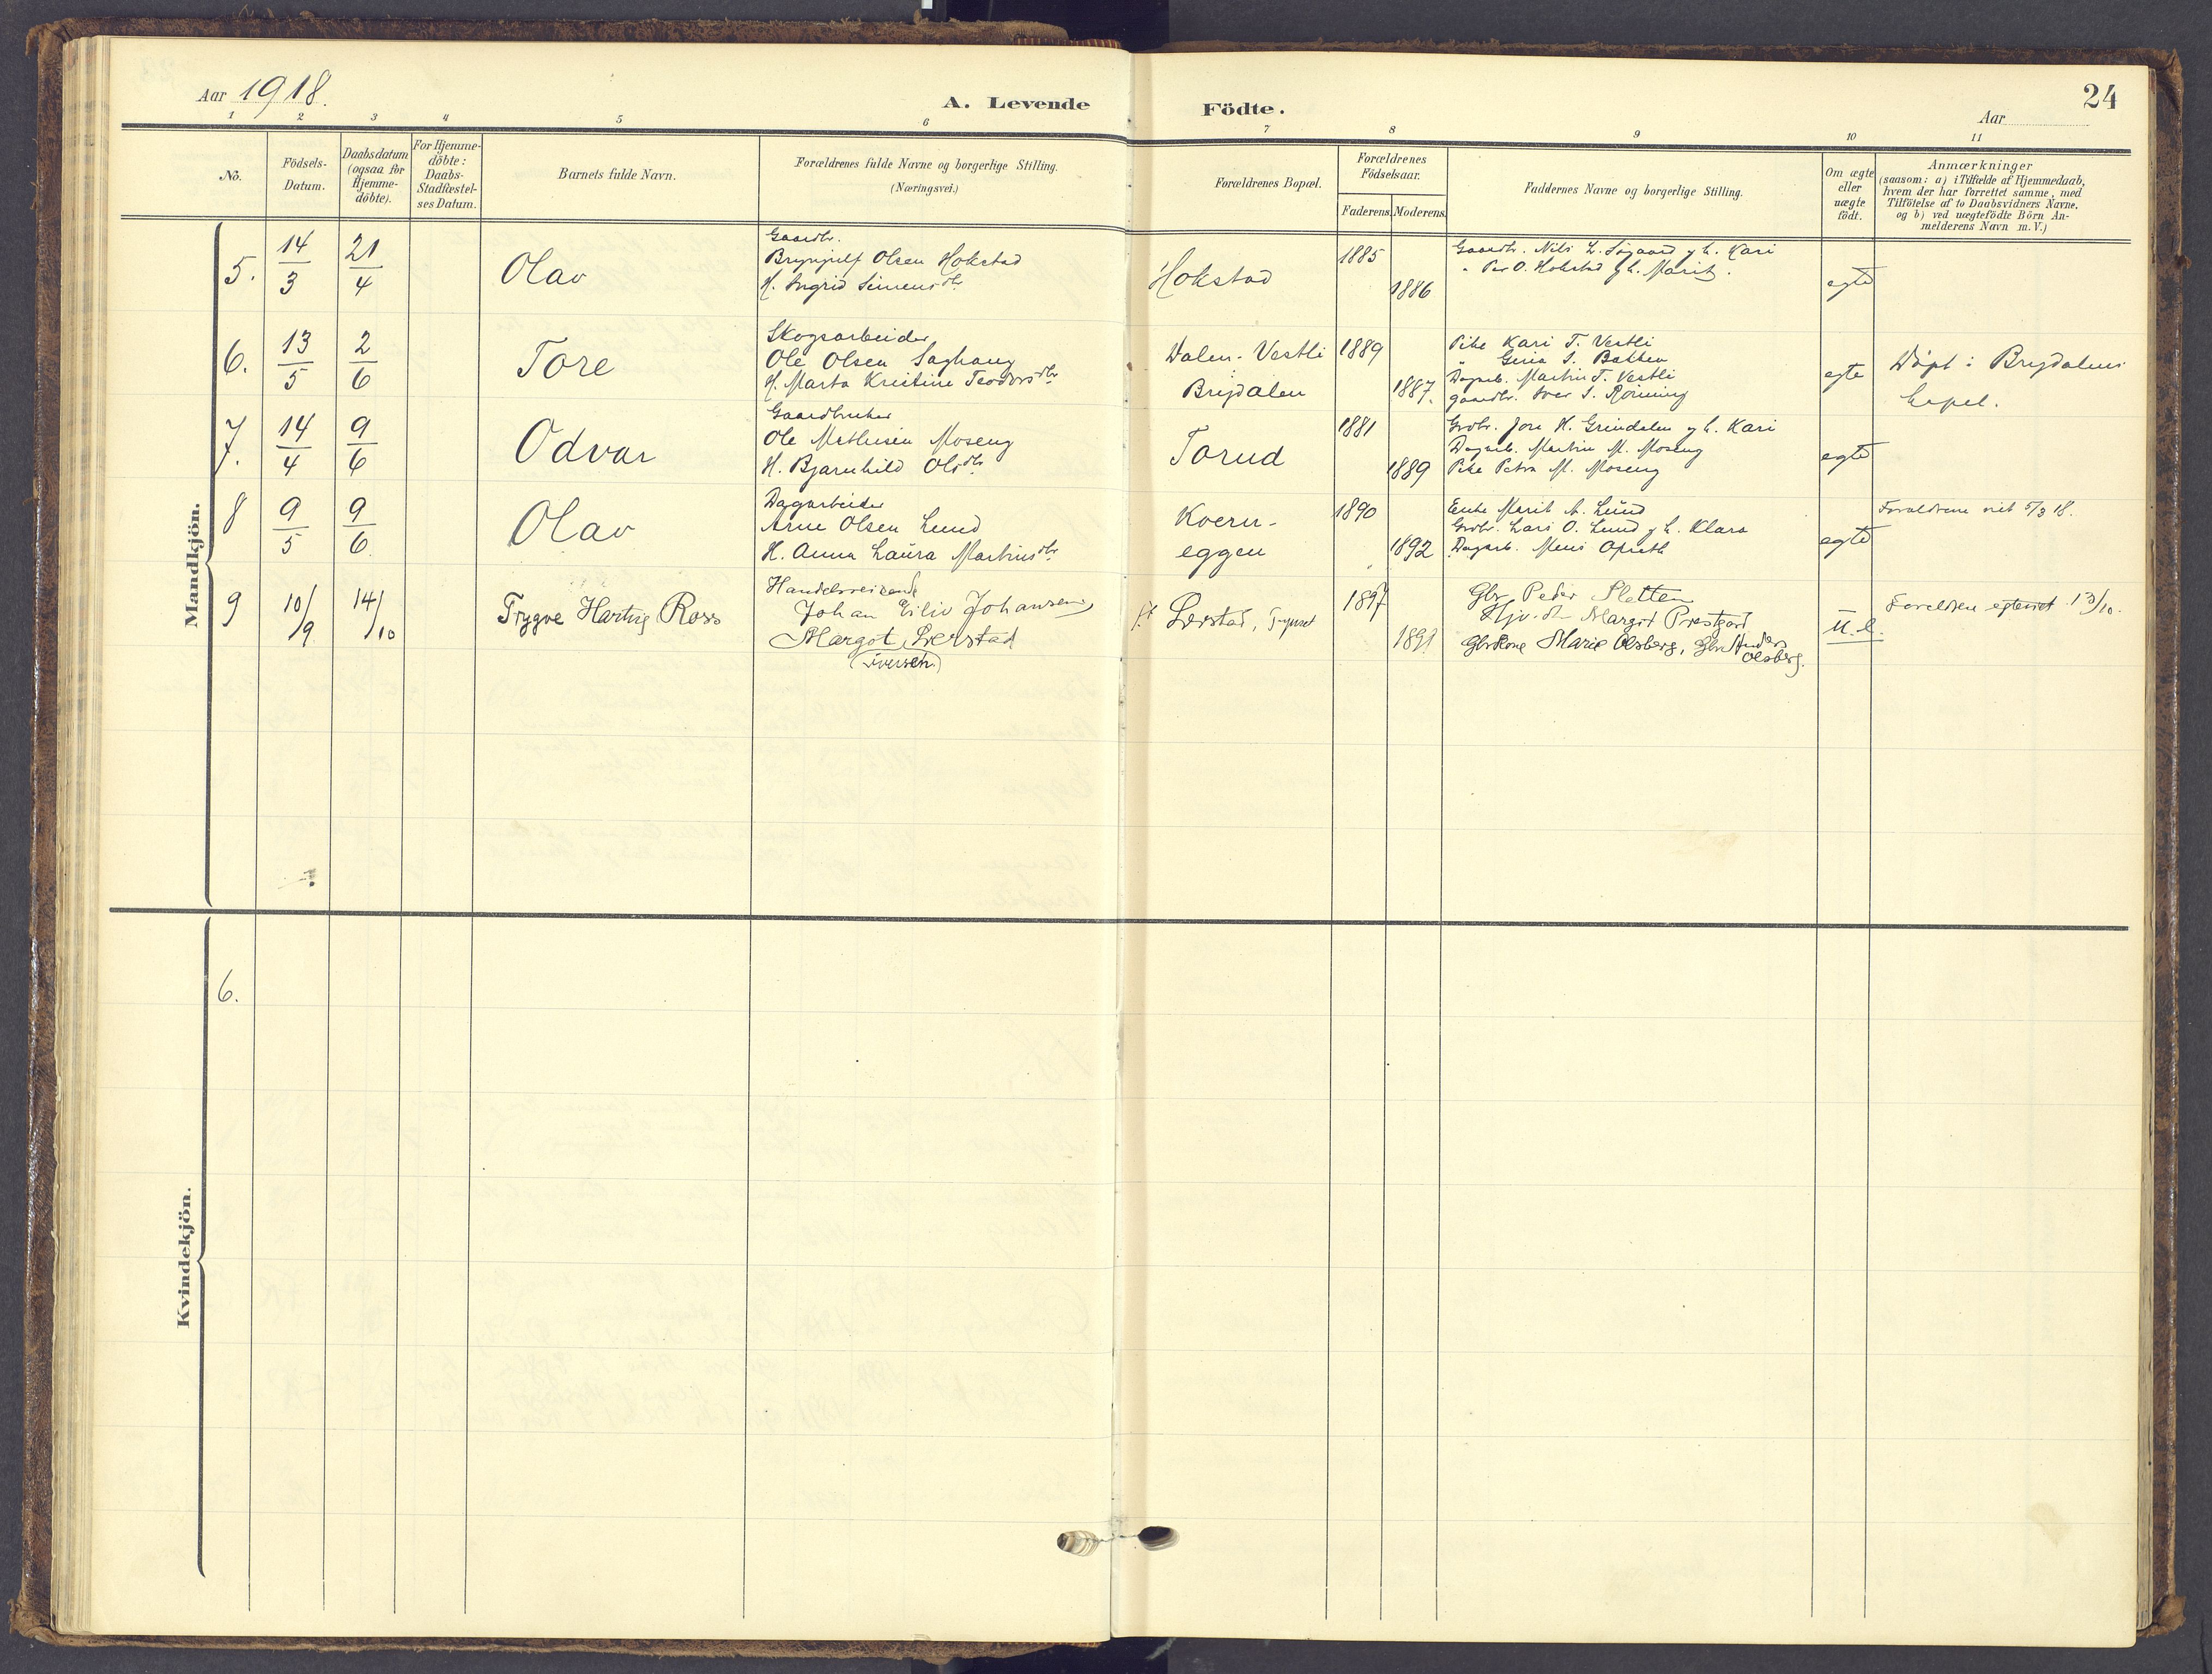 Aar 1918.
A. Levende Födte.
24
Aar
1 2 3 4 5 6 7 8 9 10 11
No.
Födsels-
Datum.
Daabsdatum
(ogsaa for
Hjemme-
döbte).
For Hjemme-
döbte:
Daabs-
Stadfæstel-
ses Datum.
Barnets fulde Navn.
Forældrenes fulde Navne og borgerlige Stilling.
(Næringsvei.)
Forældrenes Bopæl.
Forældrenes
Födselsaar.
Faderens. Moderens.
Faddernes Navne og borgerlige Stilling.
Om ægte
eller
uægte
födt.
Anmærkninger
(saasom: a) i Tilfælde af Hjemmedaab,
hvem der har forrettet samme, med
Tilföielse af to Daabsvidners Navne,
og b) ved uægtefödte Börn An-
melderens Navn m. V.)
Mandkjön.
5. 14/3 21/4 Olav
Gaardbr.
Brynjulf Olsen Hokstad
H. Ingrid Simensdtr.
Hokstad
1885
1886
Gaardbr. Nils L. Søgaard og h. Kari
" Per O. Hokstad og h. Marit.
egte
6. 13/5 2/6 Tore
Skogsarbeider
Ole Olsen Saghaug
H. Marta Kristine Teodorsdtr.
Dalen-Vestli
Brydalen
1889
1887.
Pike Kari T. Vestli
" S. Bakken
Dagarb. Martin T. Vestli
Gaardbr. Iver S. Rönning
egte
Døpt i Brydalens
kapel.
7. 14/4 9/6 Odvar
Gaardbruker
Ole Mathisen Moseng
H. Bjarnhild Olsdtr.
Torud
1881
1889
Grdbr. Jon H. Grindalen og h. Kari
Dagarb. Martin M. Moseng
Pike Petra M. Moseng
egte
8 9/5 9/6. Olav
Dagarbeider
Arne Olsen Lund
H. Anna Laura Martinsdtr.
Kvern-
eggen
1890
1892
Enke Marit A. Lund
Grdbr. Lars O. Lund og h. Klara
Dagarb. Mons
egte
Forældrene viet 5/3 18.
9 10/9. 14/10 Trygve Hartvig Ross
Handelsreisende
Johan Eiliv Johansen,
Margot Lerstad
(Iversen)
f.t. Lerstad, Tynset
1897
1891
Gbr. Peder Sletten
Margit Prestgard
Gbrkone Marie Olsberg, Gbr. Anders
Olsberg.
U.e.
Foreldrene egteviet 13/10.
Kvindekjön.
6.